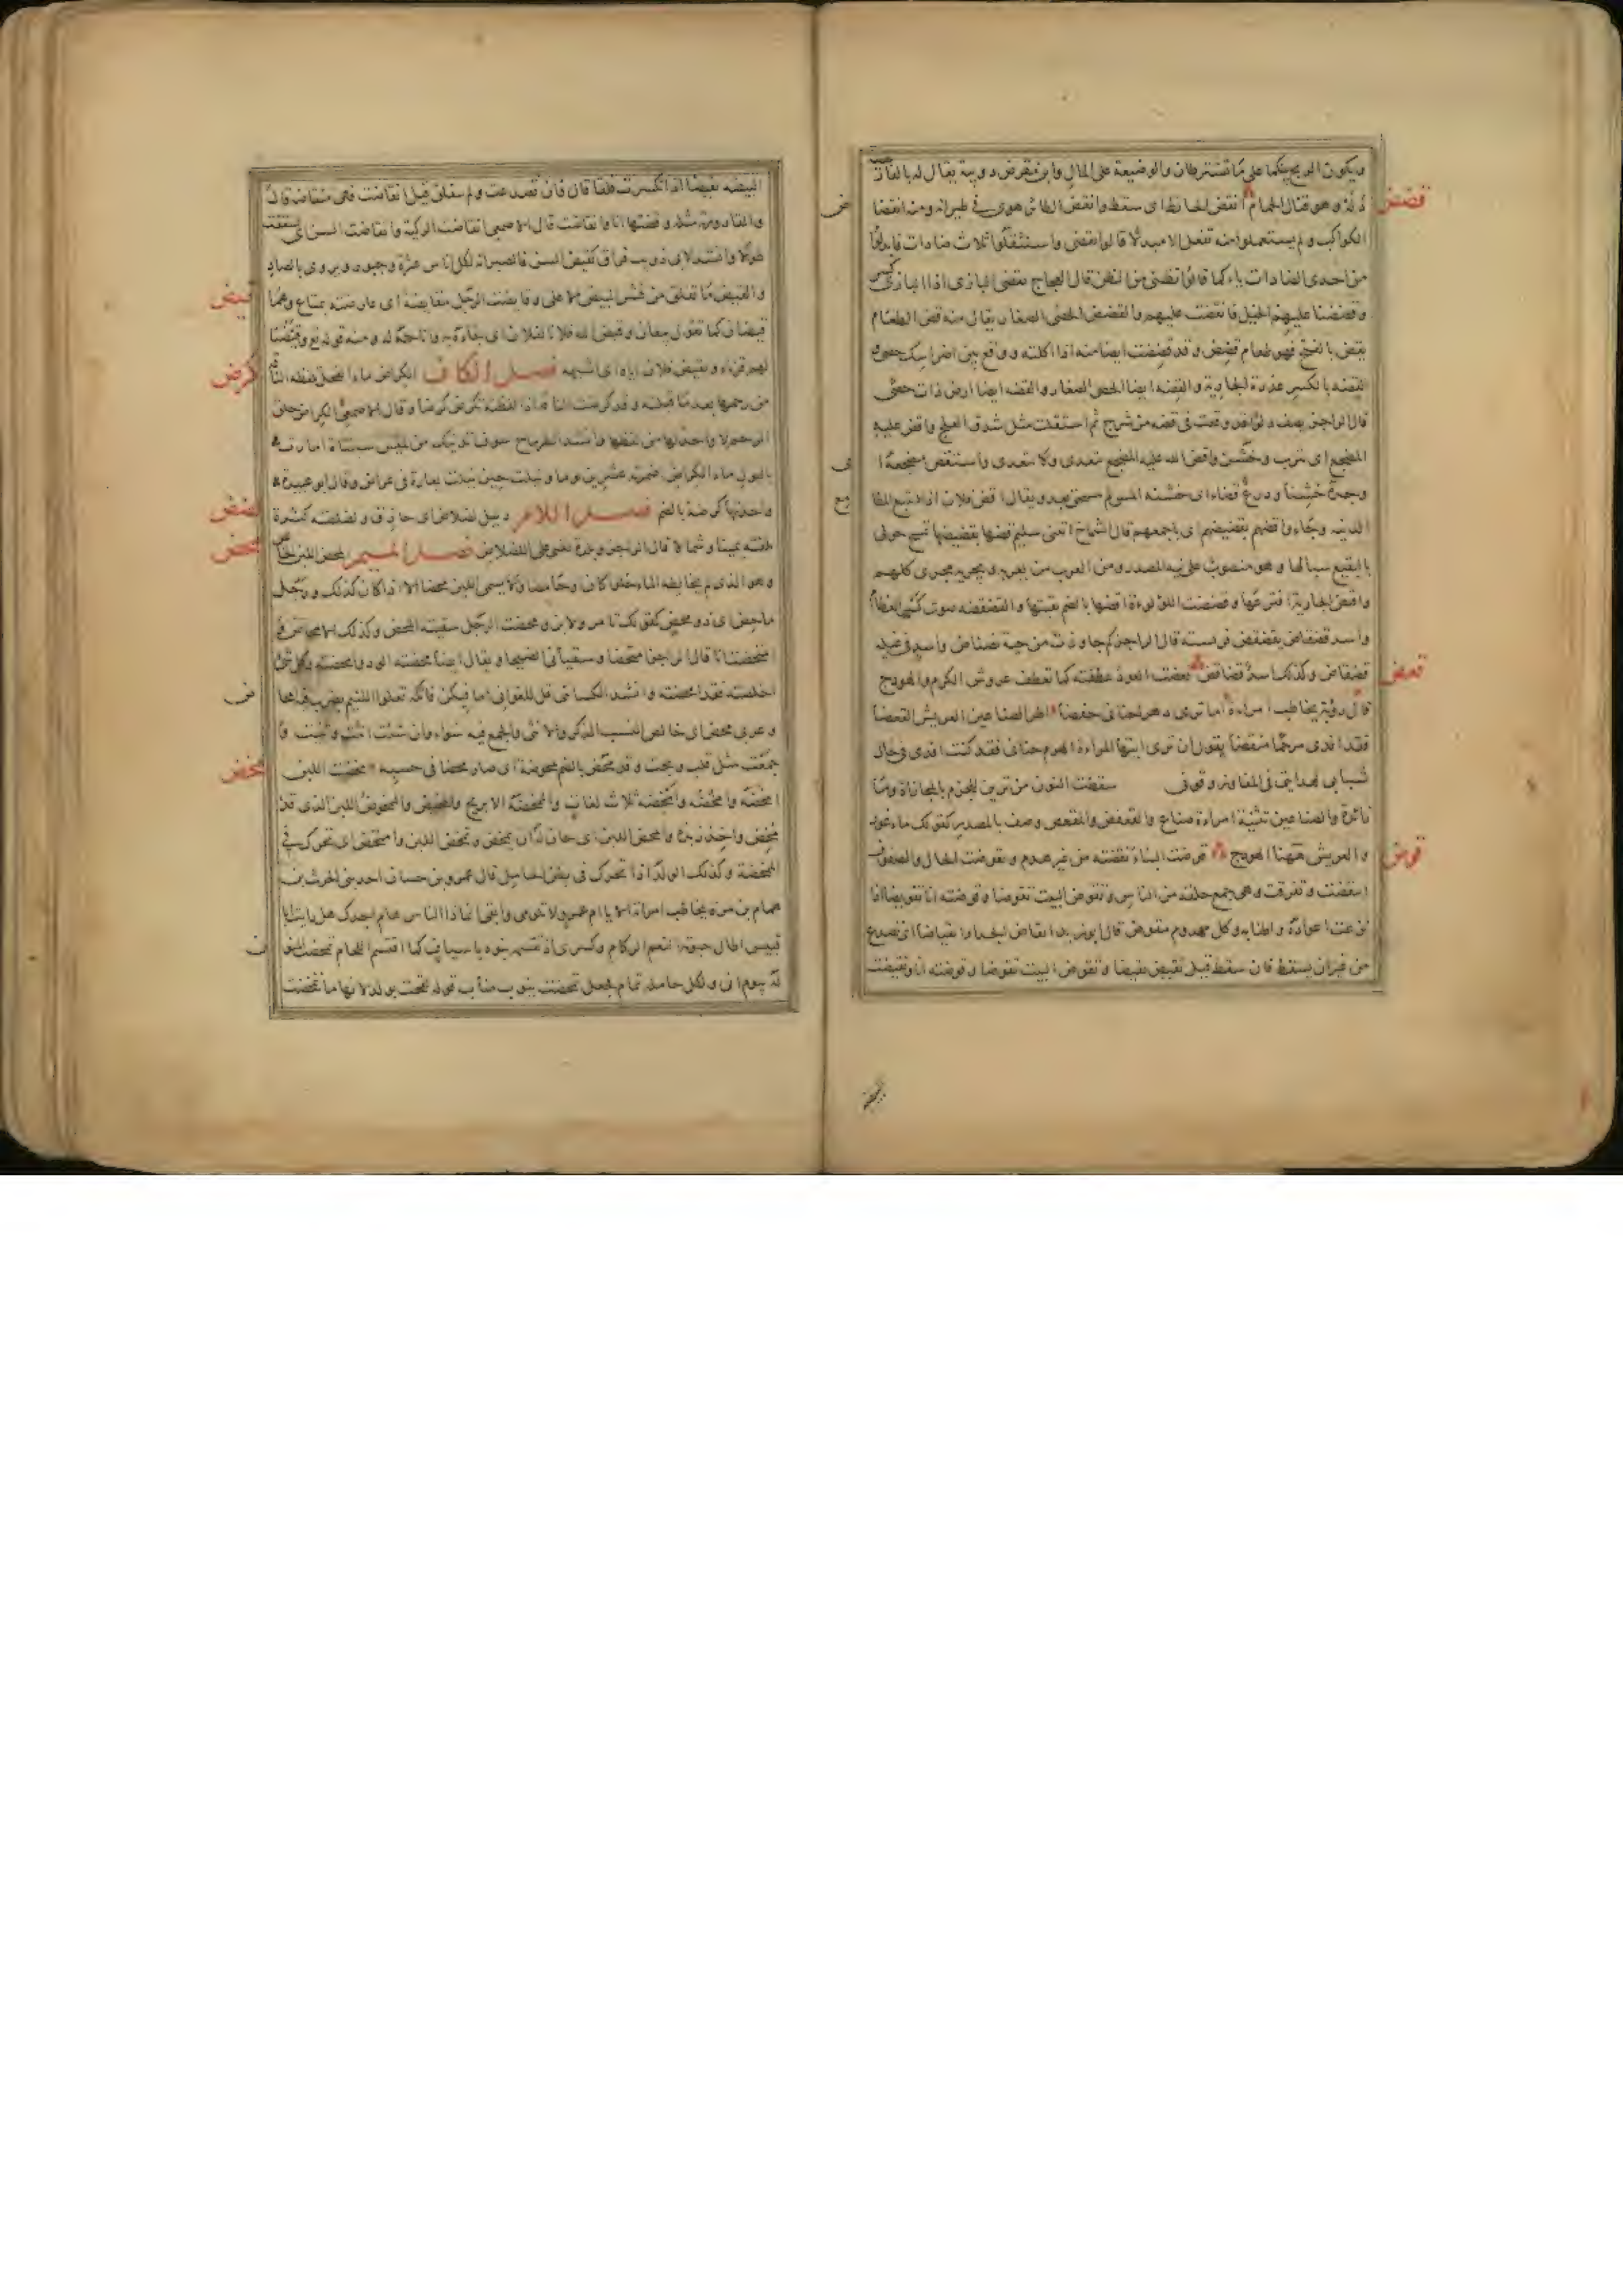 ويكون الربح بينكما على ما تشترطان والوضيعة على المال وابن مقرض دويبة يقال له بالفارسية
قضض
دله وهو قتال الحمام انقض الحائط اى سقط وانقض الطائر هوى فى طيرانه ومنه انقضاض
الكواكب ولم يستعملوا منه تفعل الا مبدلا قالوا تقضى واستثقلوا ثلاث ضادات فابدلوا
من احدى الضادات ياء كما قالوا تظنى من الظن قال العجاج تقضى البازى اذا البازى كسر
وقضضنا عليهم الخيل فانقضت عليهم والقضض الحصى الصغار يقال منه قض الطعام
يقض بالفتح فهو طعام قضض وقد قضضت ايضا منه اذا اكلته ووقع بين اضراسك حصى
القضة بالكسر عذرة الجارية والقضة ايضا الحصى الصغار والقضة ايضا ارض ذات حصى
قال الراجز يصف دلوا قد وقعت فى قضة من شرج ثم استقلت مثل شدق العلج واقض عليه
المضجع اى تترب وخشن واقض الله عليه المضجع يتعدى ولا يتعدى واستقض مضجعه اى
وجده خشنا ودرع قضاء اى خشنة المس لم تنسحق بعد ويقال اقض فلان اذا تتبع المطامع
الدنية وجاءوا قضهم بقضيضهم اى باجمعهم قال الشماخ اتتنى سليم قضها بقضيضها تمسح حولى
بالبقيع سبالها وهو منصوب على نية المصدر ومن العرب من يعربه ويجريه مجرى كلهم
واقتض الجارية افترعها وقضضت اللؤلؤة اقضها بالضم ثقبتها والقضقضة صوت كسر العظام
واسد قضقاض يقضقض فريسته قال الراجز كم جاوزت من حية نضناض واسد فى غيله
قعض
قضقاض وكذلك اسد قضاقض قعضت العود عطفته كما تعطف عروش الكرم والهودج
قال رؤبة يخاطب امراة اما ترى دهرا حنانى حفضا اطر الصناعين العريش القعضا
فقد افدى مرجما منقضا يقول ان ترى ايتها المراة الهرم حنانى فقد كنت افدى فى حال
شبابى بهدايتى فى المفاوز وقوتى سقطت النون من ترين للجزم بالمجازاة وما
زائدة والصناعين تثنية امراة صناع والقعض المقعوض وصف بالمصدر كقولك ماء غور
قوض
والعريش ههنا الهودج قوضت البناء نقضته من غير هدم وتقوضت الحلق والصفوف
انتقضت وتفرقت وهى جمع حلقة من الناس وتقوض البيت تقوضا وقوضته انا تقويضا اذا
نزعت اعواده واطنابه وكل مهدوم مقوض قال ابو زيد انقاض الجدار انقياضا اى تصدع
من غير ان يسقط فان سقط قيل تقيض تقيضا وتقوض البيت تقوضا وقوضته انا وتقيضت
البيضة
البيضة تقيضا اذا تكسرت فلقا قال فان تصدعت ولم تنفلق قيل انقاضت فهى منقاضة قال
والقارورة مثله وقضتها انا وانقاضت قال الاصمعى انقاضت الركية وانقاضت السن اى تشققت
طولا وانشد لابى ذويب فراق كقيض السن فالصبر انه لكل اناس عثرة وجبور ويروى بالصاد
قيض
والقيض ما تفلق من قشر البيض الاعلى وقايضت الرجل مقايضة اى عارضته بمتاع وهما
قيضان كما تقول بيعان وقيض الله فلانا لفلان اى جاءه به واتاحه له ومنه قوله تع وقيضنا
كرض
لهم قرناء وتقيض فلان اباه اى اشبهه فصل الكاف الكراض ماء الفحل تلفظه الناقة
من رحمها بعد ما قبلته وقد كرضت الناقة اذا لفظته تكرض كروضا وقال الاصمعى الكراض حلق
الرحم لا واحد لها من لفظها وانشد للطرماح سوف تدنيك من لميس سبنتاة امارت
بالبول ماء الكراض اضمرته عشرين يوما ونيلت حين نيلت يعارة فى عراض وقال ابو عبيدة
لضض
واحدتها كرضة بالضم فصل اللام دليل لضلاض اى حاذق ولضلضته كثرة
محض
تلفته يمينا وشمالا قال الراجز وبلدة تغبى على اللضلاض فصل الميم المحض اللبن الخالص
وهو الذى لم يخالطه الماء حلوا كان او حامضا ولا يسمى اللبن محضا الا اذا كان كذلك ورجل
ماحض اى ذو محض كقولك تامر ولابن ومحضت الرجل سقيته المحض وكذلك الامحاض
امتحضت انا قال الراجز امتحضا وسقيانى الضيحا ويقال ايضا محضته الود وامحضته وكل شئ
اخلصته فقد امحضته وانشد الكسائى قل للغوانى اما فيكن فاتكة تعلو اللئيم بضرب فيه امحاض
وعربى محض اى خالص النسب الذكر والانثى والجمع فيه سواء وان شئت انثت وثنيت و
مخض
جمعت مثل قلب وبحت وقد محض بالضم محوضة اى صار محضا فى حسبه مخضت اللبن
امخضه وامخضه وامخضه ثلاث لغات والممخضة الابريج والمخيض والممخوض اللبن الذى قد
مخض واخذ زبده وامخض اللبن اى حان له ان يمخض وتمخض اللبن وامتخض اى تحرك فى
الممخضة وكذلك الولد اذا تحرك فى بطن الحامل قال عمرو بن حسان احد بنى الحرث بن
همام بن مرة يخاطب امراته الا يا ام عمرو لا تلومى وابقى انما ذا الناس هام اجدك هل رايت ابا
قبيس اطال حيوته النعم الركام وكسرى اذ تقسمه بنوه باسياف كما اقتسم اللحام تمخضت المنون
له بيوم انى ولكل حاملة تمام فجعل تمخضت ينوب مناب قوله لقحت بولد لانها ما تمخضت